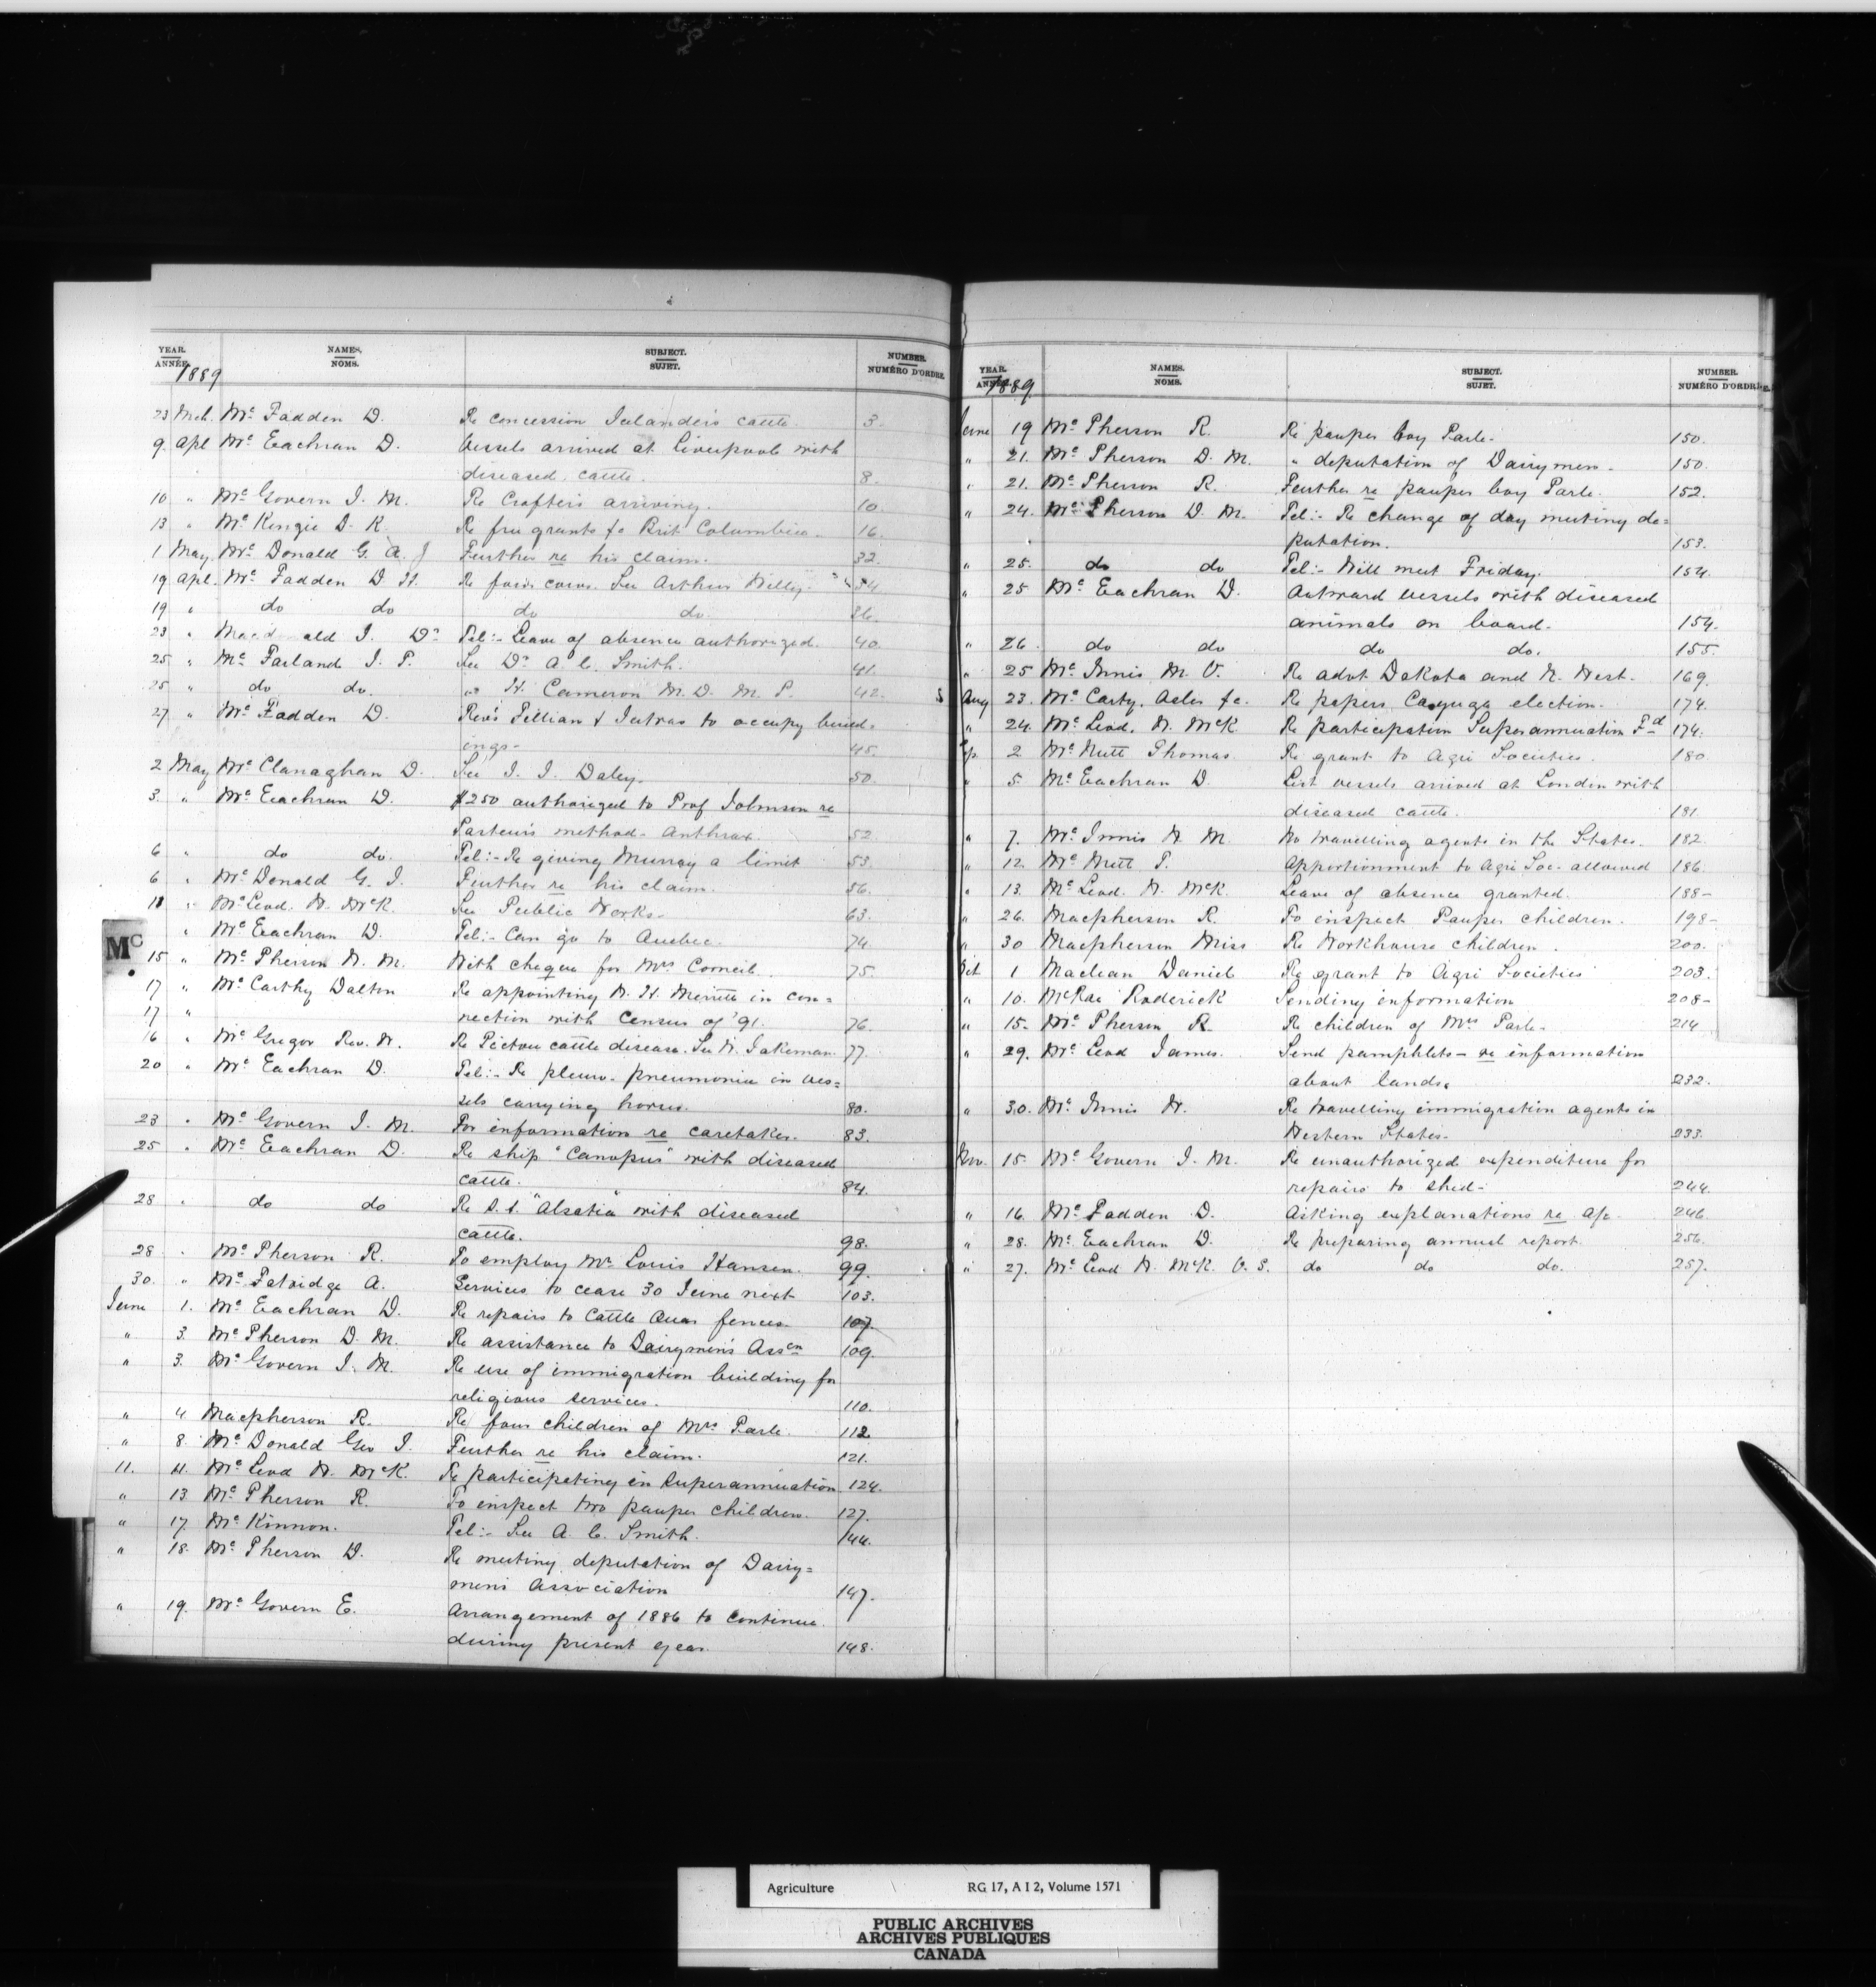 YEAR. NAMES. SUBJECT. NUMBER.
ANNÉE. NOMS. SUJET. NUMÉRO D'ORDRE.
1889
23 Mch. Mc Fadden D. Re concession Icelanders cattle. 3.
9 Apl Mc Eachran D. Vessels arrived at Liverpool with
diseased cattle. 8.
10 " Mc Govern J. M. Re Crofters arriving. 10.
13 " Mc Kenzie D. K. Re free grants &c Brit Columbia. 16.
1 May. Mc Donald G. A. J Further re his claim. 32.
19 Apl. Mc Fadden D H. Re four cows. See Arthur Willey. 34
19 " do do do do. 36.
23 " Macdonald J. Dr Tel:- Leave of absence authorized. 40.
25 " Mc Farland J. P. See Dr A. C. Smith. 41.
25 " do do. " H. Cameron M. D. M. P. 42.
27 " Mc Fadden D. Rev's Pillian & Jutras to occupy build-
ings- 45.
2 May Mc Clanaghan D. See J. J. Daley. 50.
3. " Mc Eachran D. $250 authorized to Prof Johnson re
Pasteur's method- Anthrax. 52.
6 " do do. Tel:- Re giving Murray a limit 53.
6 " Mc Donald G. J. Further re his claim. 56.
18 " Mc Leod. W. McK. See Public Works- 63.
" Mc Eachran D. Tel:- Can go to Quebec. 74.
Mc
15 " Mc Pherson W. M. With cheque for Mrs Corneil. 75.
17 " Mc Carthy Dalton Re appointing W. H. Merritt in con=
17 " nection with Census of '91. 76.
16 " Mc Gregor Rev. W. Re Pictou cattle disease. See W. Jakeman. 77.
20 " Mc Eachran D. Tel:- Re pleuro-pneumonia in ves=
sels carrying horses. 80.
23 " Mc Govern J. M. For information re caretaker. 83.
25 " Mc Eachran D. Re ship "Canopus" with diseased
cattle. 84.
28 " do do Re S.S. "Alsatia" with diseased
cattle. 98.
28 " Mc Pherson R. To employ Mr Louis Hansen. 99.
30. " Mc Fatridge A. Services to cease 30 June next 103.
June 1. Mc Eachran D. Re repairs to Cattle Quar fences. 107.
" 3. Mc Pherson D. M. Re assistance to Dairymen's Assen 109.
" 3. Mc Govern J. M. Re use of immigration building for
religious services. 110.
" 4 Macpherson R. Re four children of Mrs Parle. 112.
" 8. Mc Donald Geo J. Further re his claim. 121.
11. 11. Mc Leod W. McK. Re participating in Superannuation 124.
" 13 Mc Pherson R. To inspect two pauper children. 127.
" 17. Mc Kinnon. Tel:- See A. C. Smith. 144.
" 18. Mc Pherson D. Re meeting deputation of Dairy=
men's Association 147.
" 19. Mc Govern E. Arrangement of 1886 to continue
during present year. 148.
YEAR. NAMES. SUBJECT. NUMBER.
ANNÉE. NOMS. SUJET. NUMÉRO D'ORDRE.
1889
June 19 Mc Pherson R. Re pauper boy Parle. 150.
" 21. Mc Pherson D. M. " deputation of Dairymen. 150.
" 21. Mc Pherson R. Further re pauper boy Parle. 152.
" 24. Mc Pherson D. M. Tel:- Re change of day meeting de=
putation. 153.
" 25. do do Tel:- Will meet Friday. 154.
" 25 Mc Eachran D. Outward vessels with diseased
animals on board. 154.
" 26 do do do do. 155.
" 25 Mc Innis M. V. Re advt Dakota and N. West. 169.
Aug 23. Mc Carty, Osler &c. Re papers Cayuga election. 174.
" 24. Mc Leod. W. McK. Re participation Superannuation Fd 174.
Sep. 2 Mc Nutt Thomas Re grant to Agri Societies. 180.
" 5. Mc Eachran D. List vessels arrived at London with
diseased cattle. 181.
" 7. Mc Innis W M. No travelling agents in the States. 182.
" 12. Mc Nutt T. Apportionment to Agri Soc. allowed 186.
" 13. Mc Leod. W. McK. Leave of absence granted. 188-
" 26. Macpherson R. To inspect Pauper children. 198-
" 30 Macpherson Miss Re Workhouse children. 200.
Oct 1 Maclean Daniel Re grant to Agri Societies 203.
" 10. McRae Roderick Sending information 208-
" 15. Mc Pherson R. Re children of Mrs Parle. 214
" 29. Mc Leod James. Send pamphlets- re information
about lands. 232.
" 30. Mc Innis W. Re travelling immigration agents in
Western States. 233.
Nov. 15. Mc Govern J. M. Re unauthorized expenditure for
repairs to shed. 244.
" 16. Mc Fadden D. Asking explanations re a/c 246.
" 28. Mc Eachran D. Re preparing annual report. 256.
" 27. Mc Leod W. McK. V. S. do do do. 257.
Agriculture RG 17, A I 2, Volume 1571
PUBLIC ARCHIVES
ARCHIVES PUBLIQUES
CANADA